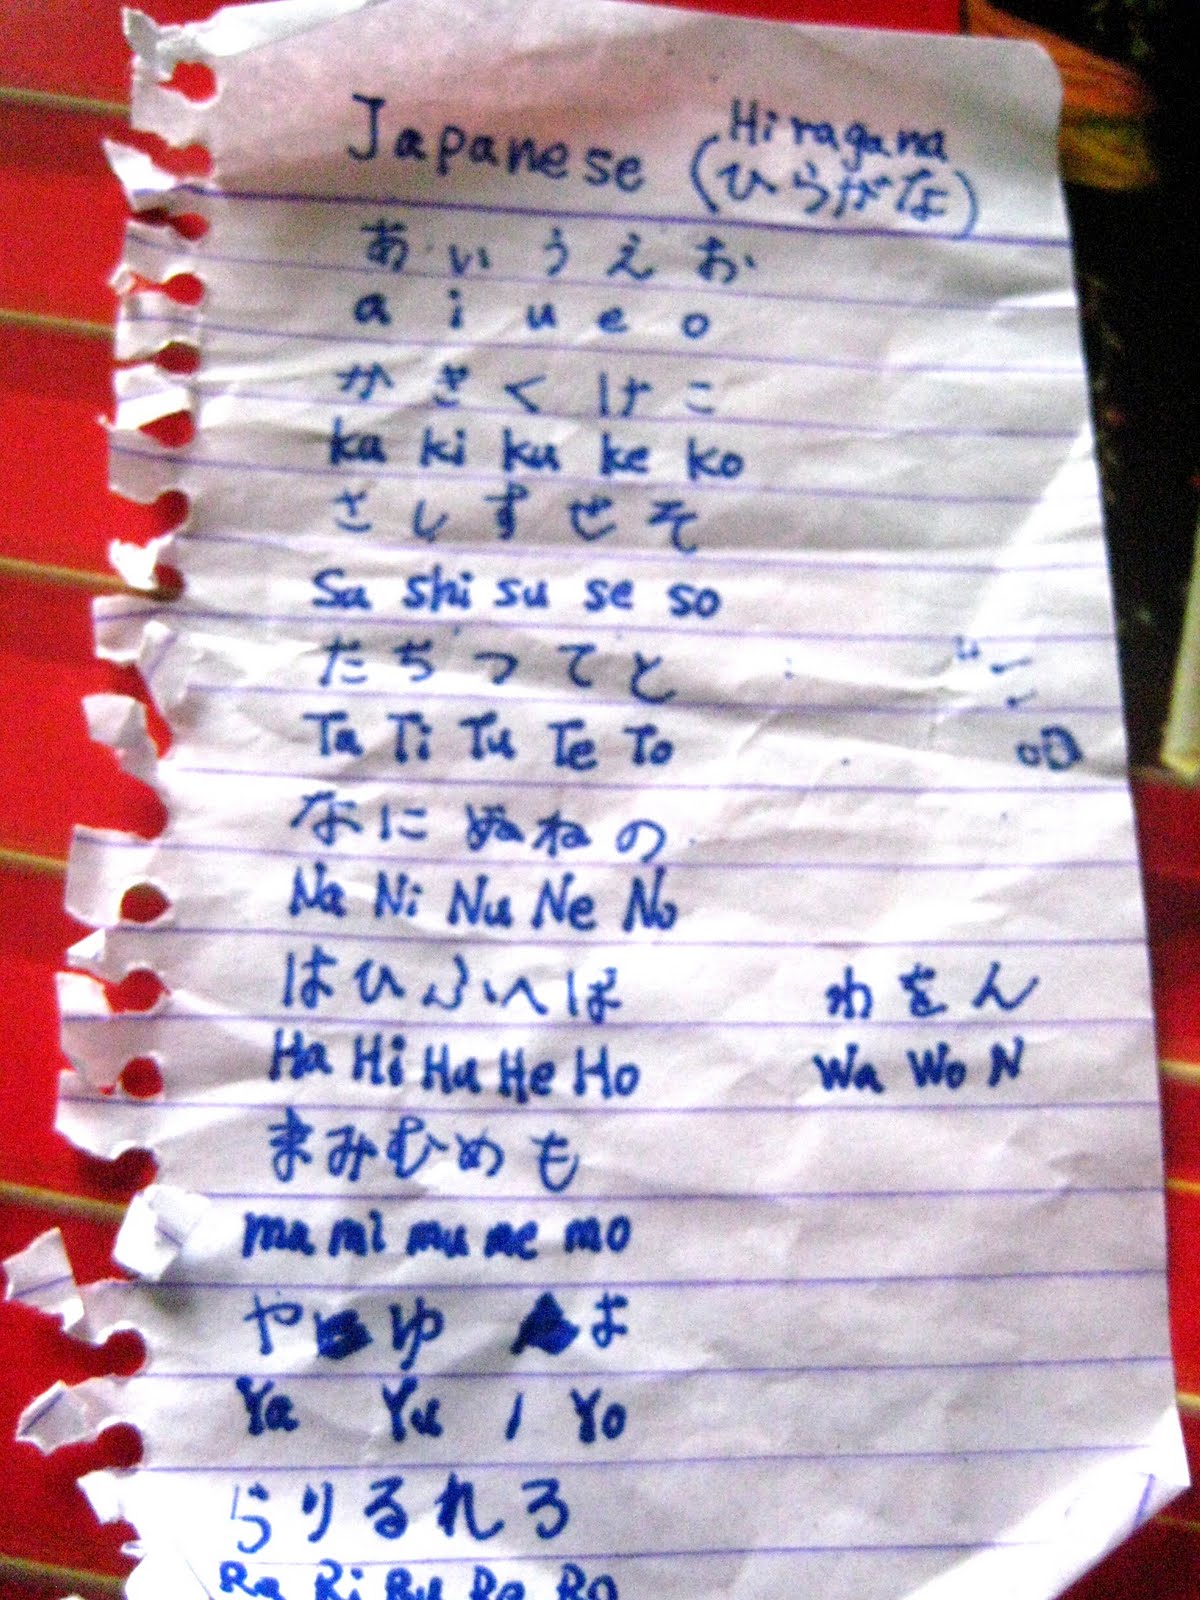 Hiragana
Japanese (ひらがな)
あ い う え お
a i u e o
か き く け こ
ka ki ku ke ko
さ し す せ そ
Sa shi su se so
た ち つ て と
Ta Ti Tu Te To
な に ぬ ね の
Na Ni Nu Ne No
は ひ ふ へ ほ わ を ん
Ha Hi Hu He Ho Wa Wo N
ま み む め も
ma mi mu me mo
や ゆ よ
Ya Yu / Yo
ら り る れ ろ
Ra Ri Ru Re Ro